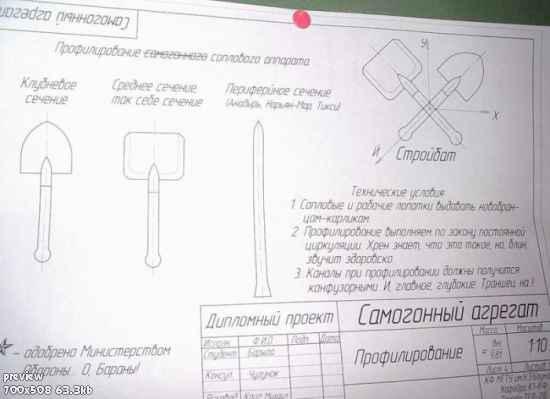 Самогонный
Профилирование самогонного соплового аппарата
Клубневое
сечение
Среднее сечение,
так себе сечение
Периферийное сечение
(Анадырь, Нарьян-Мар, Тикси)
У
X
И
Стройбат
Технические условия
1. Сопловые и рабочие лопатки выдавать новобран-
цам-карликам.
2. Профилирование выполняем по закону постоянной
циркуляции. Хрен знает, что это такое, но, блин,
звучит здорово.
3. Каналы при профилировании должны получится
конфузорными. И, главное, глубокие. Траншеи, на..!
- одобрена Министерством
Обороны... О, Бараны!
Дипломный проект
Самогонный агрегат
Исполн.
Ф.И.О.
Подп.
Дата
Студент
Консул.
Чугунок
Профилирование
Масса
Масштаб
Вес
= 9,81
1:10
Лист 4
preview
700x508 63.3kb